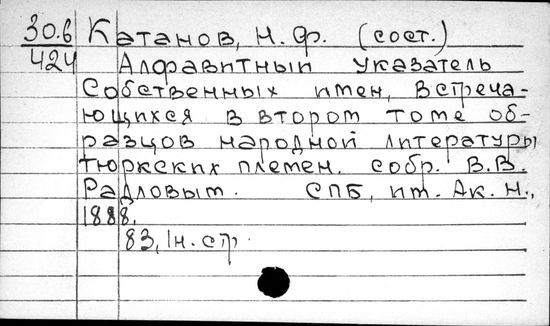 30.6 Катанов, Н. Ф. (сост.)
424 Алфавитный указатель
собственных имен, встреча-
ющихся в втором томе об-
разцов народной литературы
тюркских племен. собр. В.В.
Радловым. СПБ, тип. Ак. Н.,
1888.
83, 1н. стр.